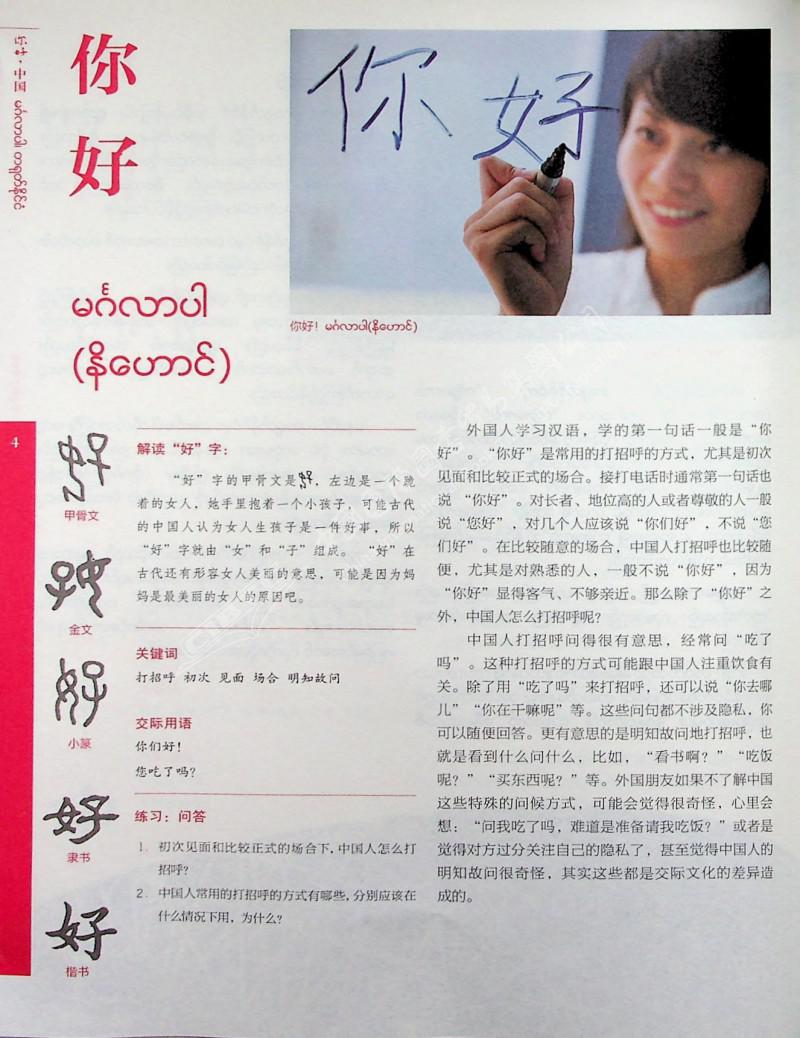 你好·中国 မင်္ဂလာပါ တရုတ်နိုင်ငံ
你
好
မင်္ဂလာပါ
(နိဟောင်)
你好
你好！ မင်္ဂလာပါ(နိဟောင်)
4
甲骨文
金文
小篆
好
隶书
好
楷书
解读“好”字：
“好”字的甲骨文是，左边是一个跪
着的女人，她手里抱着一个小孩子，可能古代
的中国人认为女人生孩子是一件好事，所以
“好”字就由“女”和“子”组成。 “好”在
古代还有形容女人美丽的意思，可能是因为妈
妈是最美丽的女人的原因吧。
关键词
打招呼 初次 见面 场合 明知故问
交际用语
你们好！
您吃了吗？
练习：问答
1. 初次见面和比较正式的场合下，中国人怎么打
招呼？
2. 中国人常用的打招呼的方式有哪些，分别应该在
什么情况下用，为什么？
外国人学习汉语，学的第一句话一般是“你
好”。“你好”是常用的打招呼的方式，尤其是初次
见面和比较正式的场合。接打电话时通常第一句话也
说 “你好”。对长者、地位高的人或者尊敬的人一般
说“您好”，对几个人应该说“你们好”，不说“您
们好”。在比较随意的场合，中国人打招呼也比较随
便，尤其是对熟悉的人，一般不说“你好”，因为
“你好”显得客气、不够亲近。那么除了“你好”之
外，中国人怎么打招呼呢？
中国人打招呼问得很有意思，经常问“吃了
吗”。这种打招呼的方式可能跟中国人注重饮食有
关。除了用“吃了吗”来打招呼，还可以说“你去哪
儿”“你在干嘛呢”等。这些问句都不涉及隐私，你
可以随便回答。更有意思的是明知故问地打招呼，也
就是看到什么问什么，比如，“看书啊？”“吃饭
呢？”“买东西呢？”等。外国朋友如果不了解中国
这些特殊的问候方式，可能会觉得很奇怪，心里会
想：“问我吃了吗，难道是准备请我吃饭？”或者是
觉得对方过分关注自己的隐私了，甚至觉得中国人的
明知故问很奇怪，其实这些都是交际文化的差异造
成的。